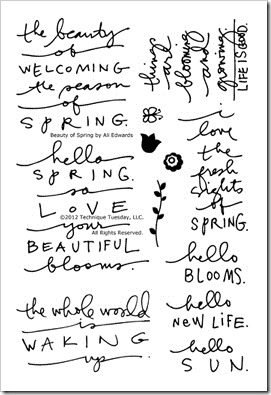 the beauty
of
WELCOMING
the season
of
SPRING.
Beauty of Spring by Ali Edwards
hello
SPRING.
so
LOVE
©2012 Technique Tuesday, LLC.
your
All Rights Reserved.
BEAUTIFUL
blooms.
the whole world
is
WAKING
up
things
are
blooming
and
growing.
LIFE IS GOOD.
i
love
the
fresh
sights
of
SPRING.
hello
BLOOMS.
hello
NEW LIFE.
hello
SUN.